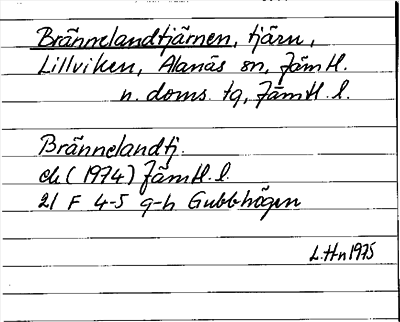 Brännelandtjärnen, tjärn,
Lillviken, Alanäs sn, Jämtl.
n. doms. tg, Jämtl. l.
Brännelandtj.
ek (1974) Jämtl. l.
21 F 4-5 g-h Gubbhögen
L.Hn 1975